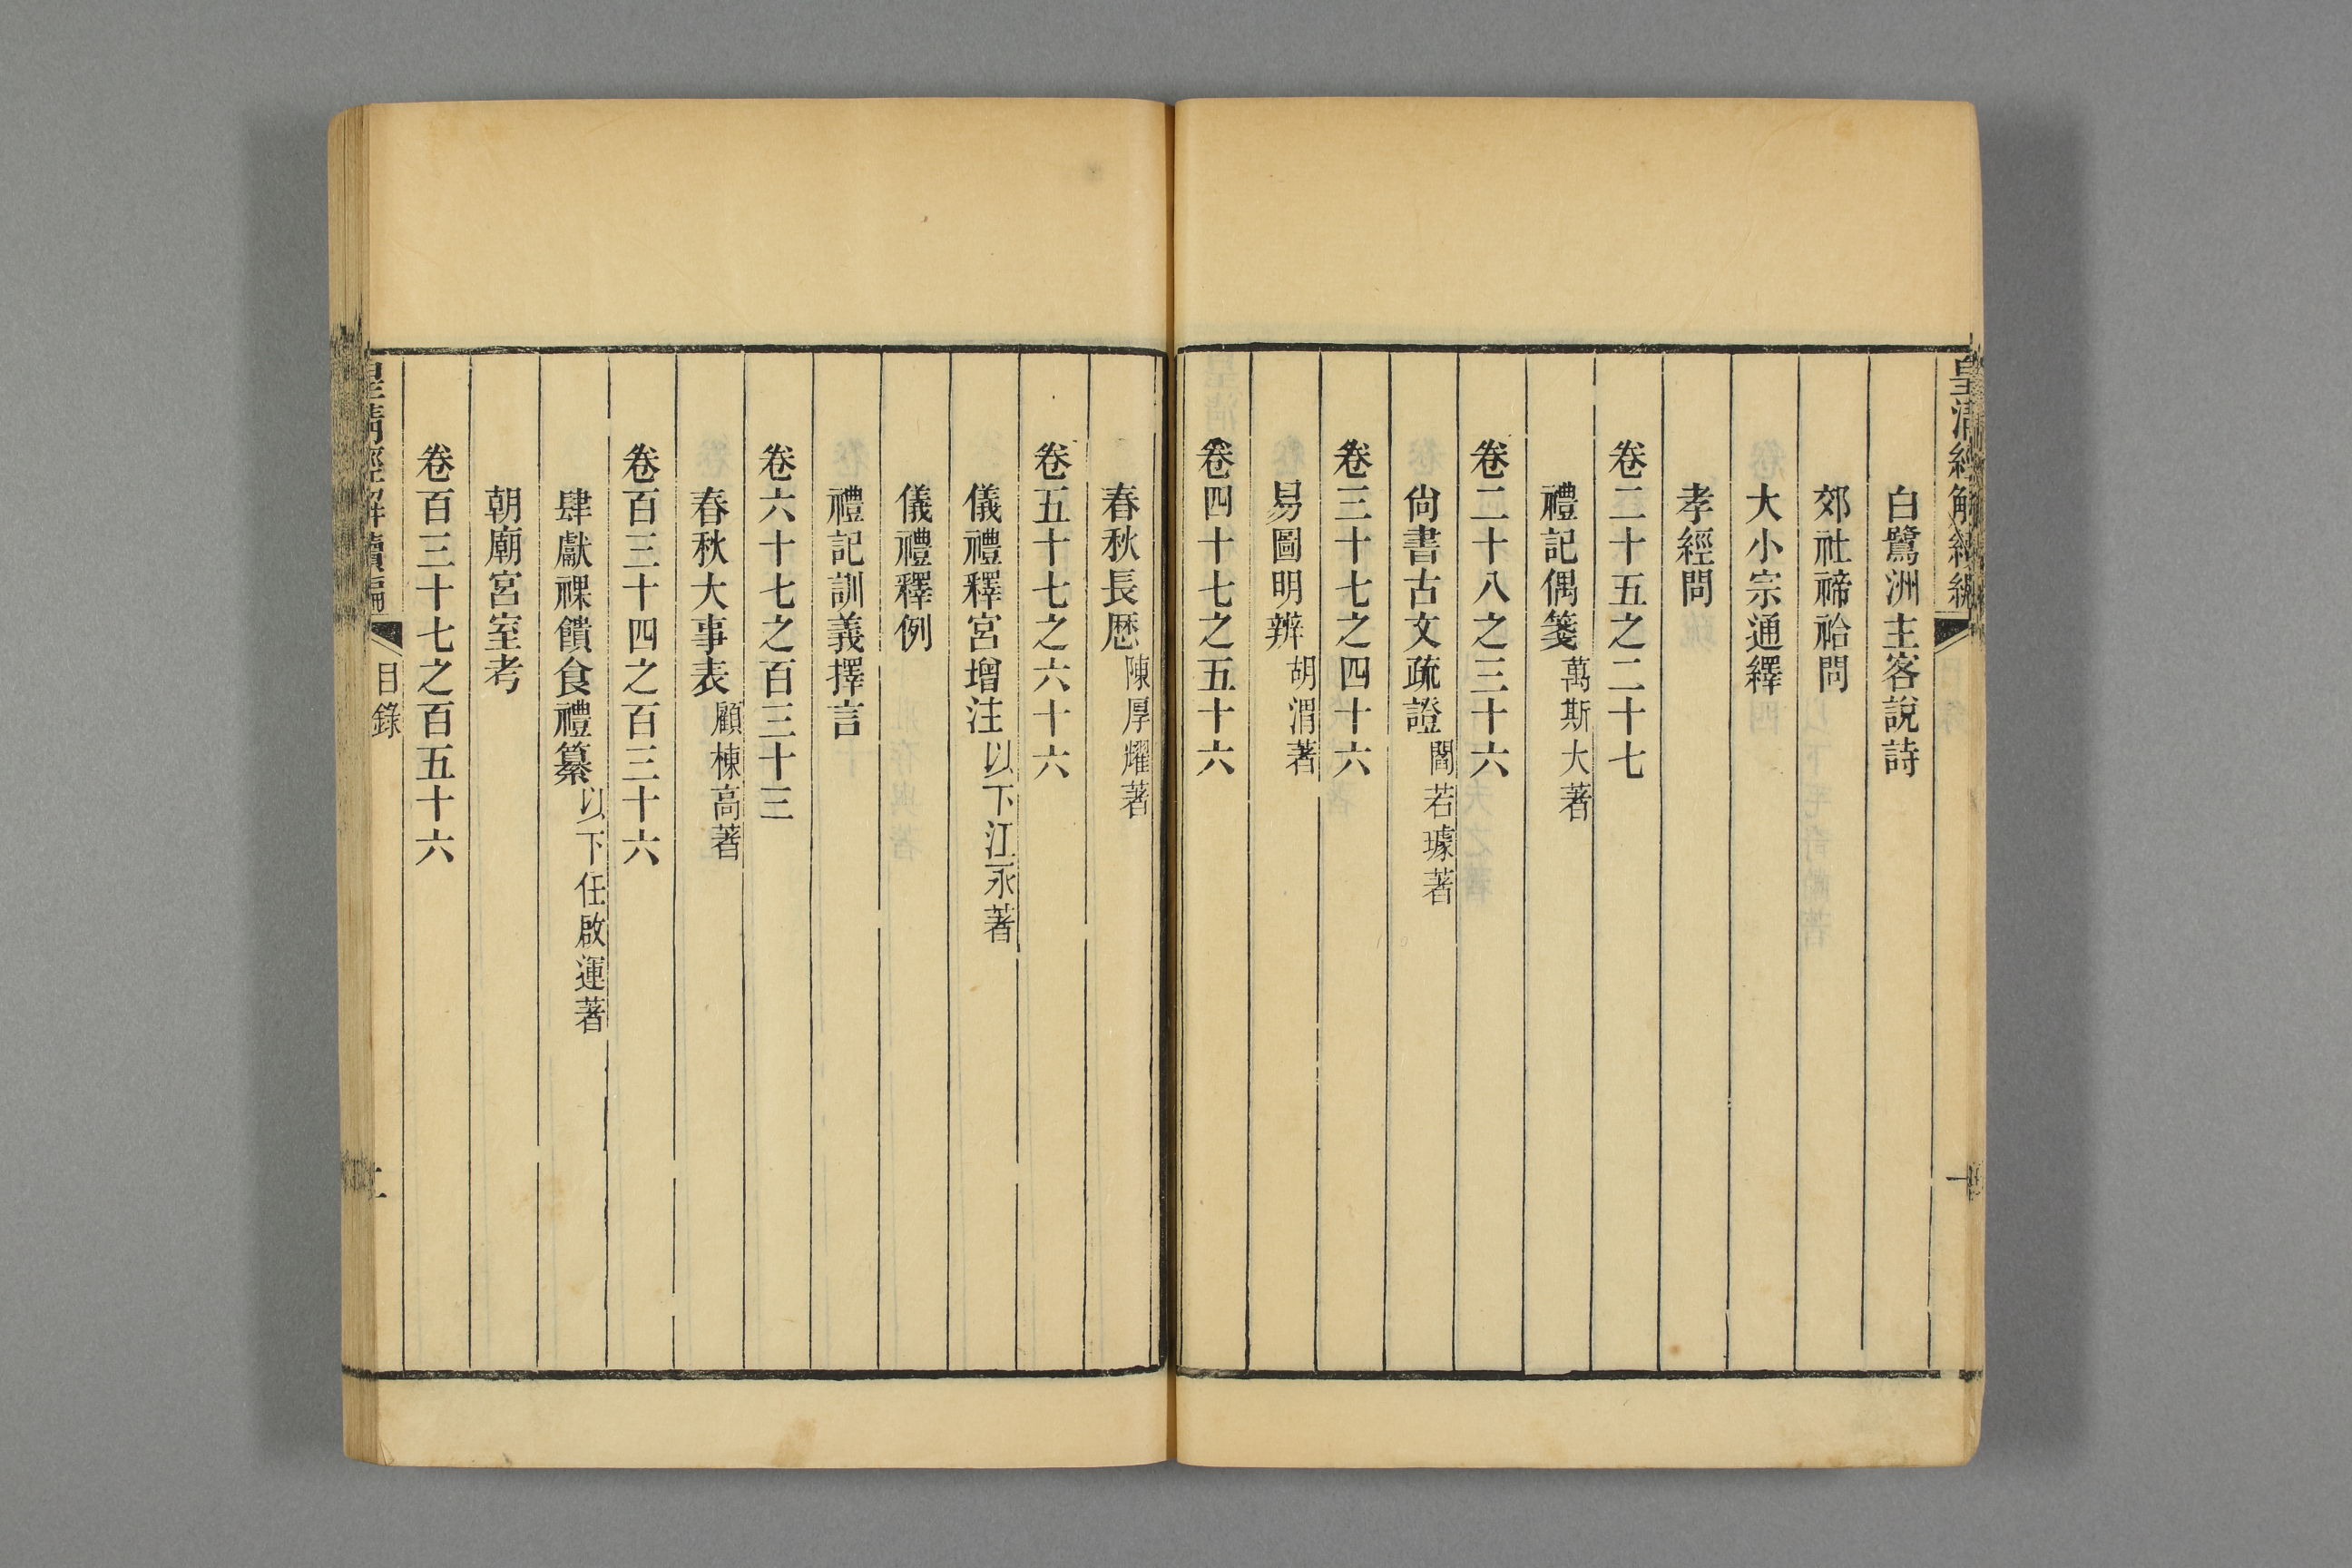 皇清經解續編
一
白鷺洲主客說詩
郊社禘祫問
大小宗通繹
孝經問
卷二十五之二十七
禮記偶箋 萬斯大著
卷二十八之三十六
尙書古文疏證 閻若璩著
卷三十七之四十六
易圖明辨 胡渭著
卷四十七之五十六
春秋長厯 陳厚耀著
卷五十七之六十六
儀禮釋宮增注 以下江永著
儀禮釋例
禮記訓義擇言
卷六十七之百三十三
春秋大事表 顧棟高著
卷百三十四之百三十六
肆獻祼饋食禮纂 以下任啟運著
朝廟宮室考
卷百三十七之百五十六
皇清經解續編 目錄